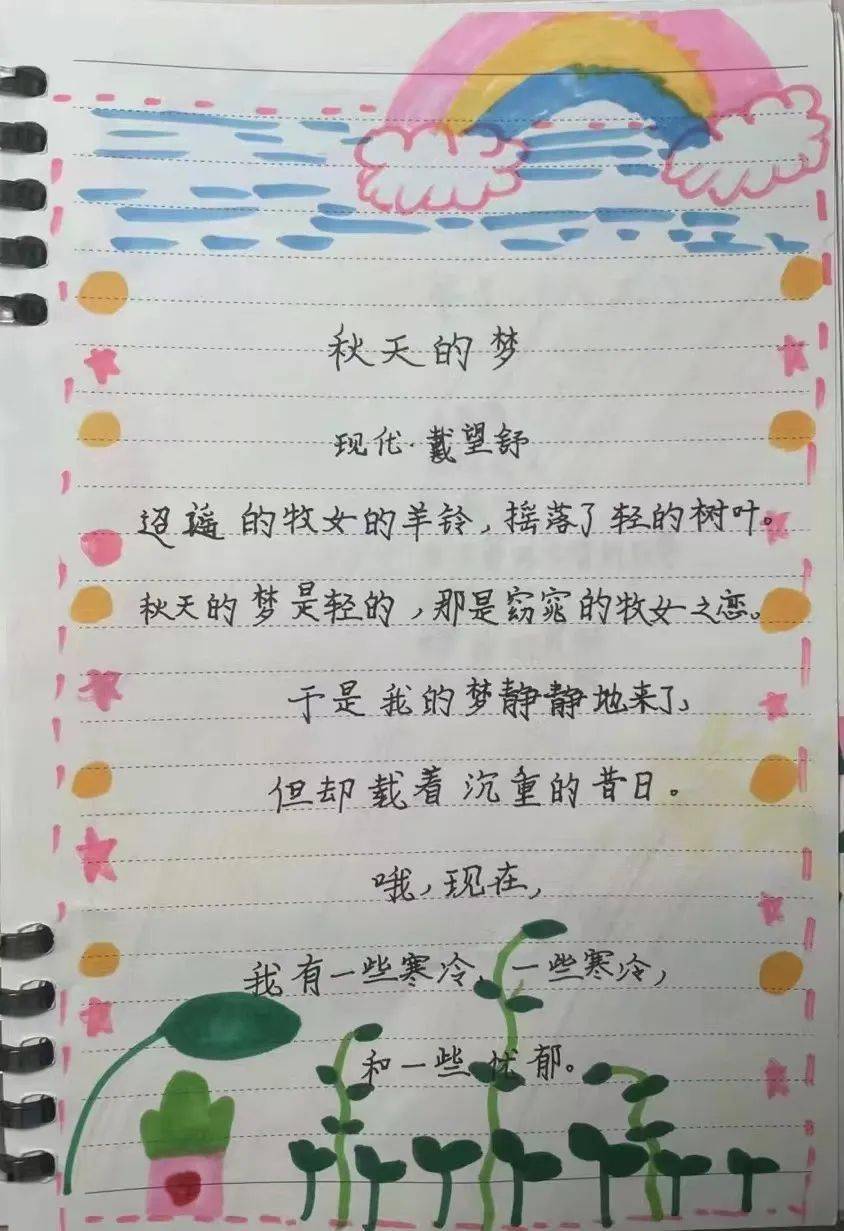 秋天的梦
现代·戴望舒
迢遥的牧女的羊铃，摇落了轻的树叶。
秋天的梦是轻的，那是窈窕的牧女之恋。
于是我的梦静静地来了，
但却载着沉重的昔日。
哦，现在，
我有一些寒冷，一些寒冷，
和一些忧郁。